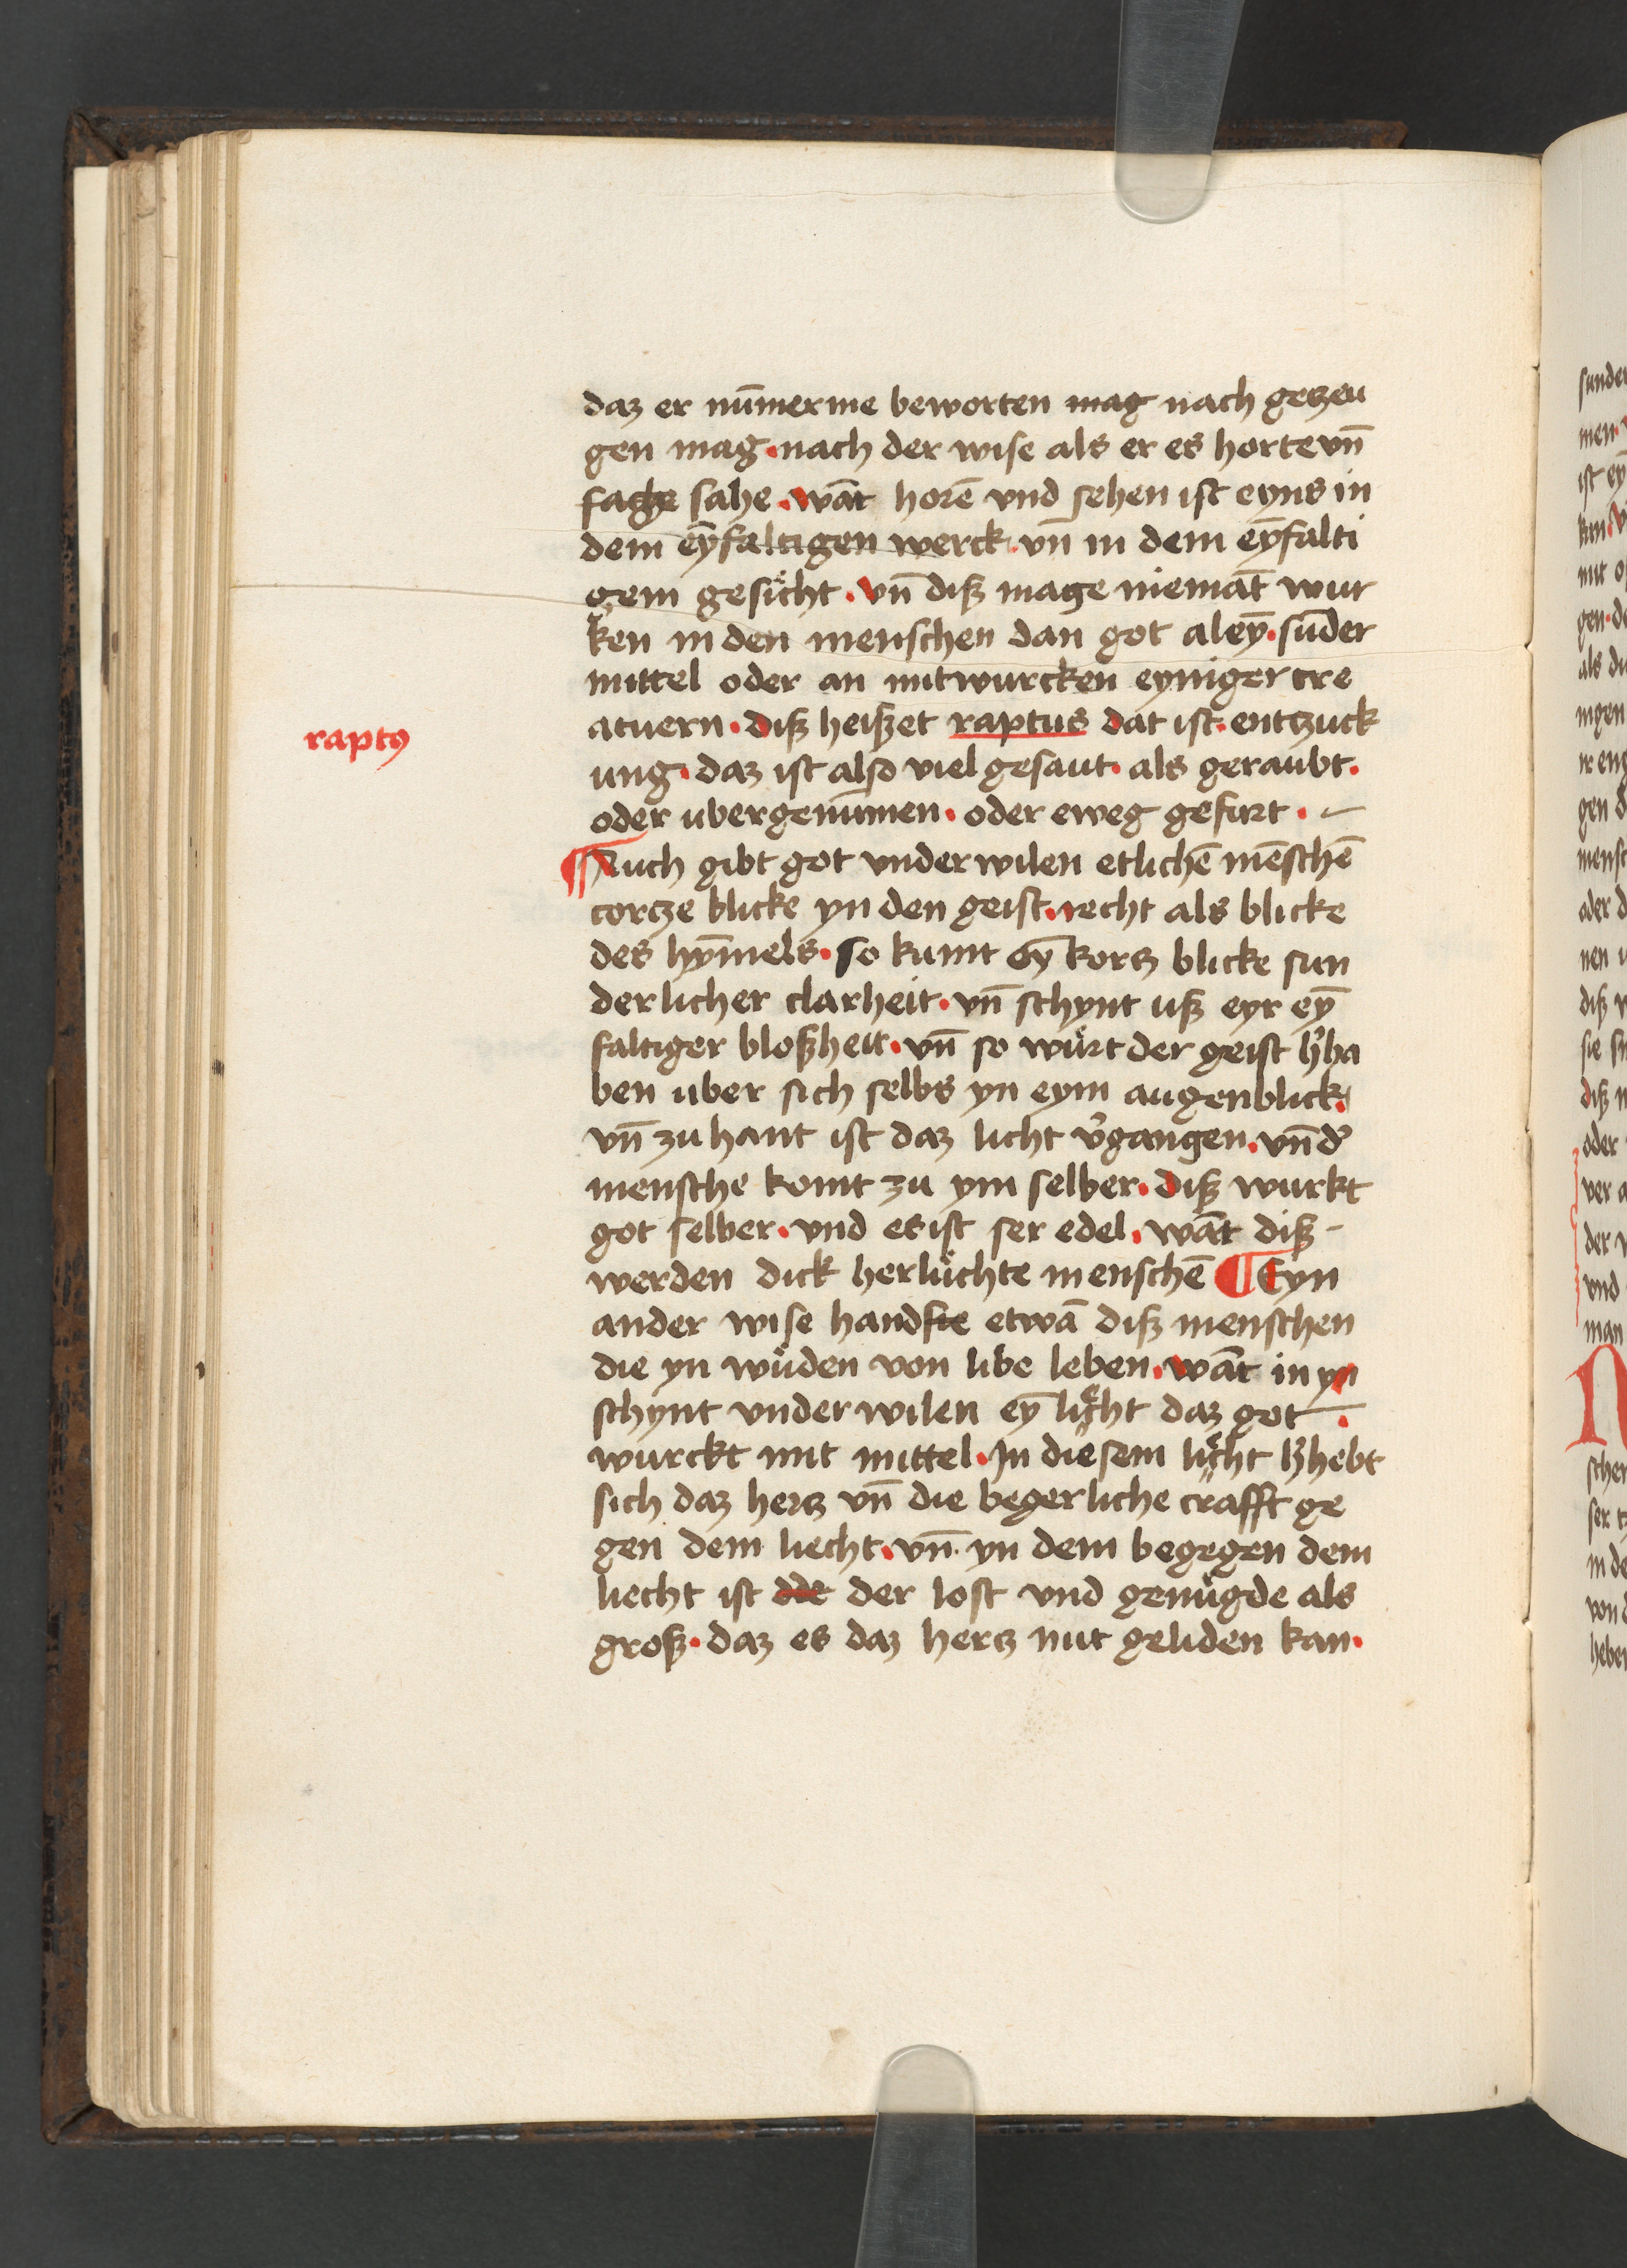 daz er nūmerme beworten mag nach gezeu
gen mag · nach der wise als er es horte vn̄
sage sahe · wāt horē vnd sehen ist eyns in
dem eȳfaltigen werck · vn̄ in dem eȳfalti
gem gesicht · vn̄ diß mage niemāt wur
ken in den menschen dan got aleȳ · sūder
mittel oder an mitwurcken eyniger cre
atuern · diß heißet raptus dat ist · entzuck
raptꝰ
ung · daz ist also viel gesaut · als geraubt ·
oder ubergenūmen · oder eweg gefurt ·
¶ Auch gibt got vnderwilen etlichē mēschē
cortze blicke yn den geist · recht als blicke
des hȳmels · so kumt eȳ kortz blicke sun
derlicher clarheit · vn̄ schynt uß eyr eȳ
faltiger bloßheit · vn̄ so würt der geist h᾽ha
ben uber sich selbs yn eym augenblick ·
vn̄ zu hant ist daz licht v᾽gangen · vn̄ d᾽
mensche komt zu ym selber · diß wurkt
got selber · vnd es ist ser edel · wāt diß
werden dick herlüchte menschē ¶ Eyn
ander wise handſte etwā diß menschen
die yn wüden von libe leben · wāt in yn
schynt vnderwilen eȳ liͤcht daz got ·
wurckt mit mittel · In diesem liͤcht h᾽hebt
sich daz hertz vn̄ die begerliche crafft ge
gen dem liecht · vn̄ yn dem begegen dem
liecht ist der lost vnd genügde als
groß · daz es daz hertz nut geliden kan ·